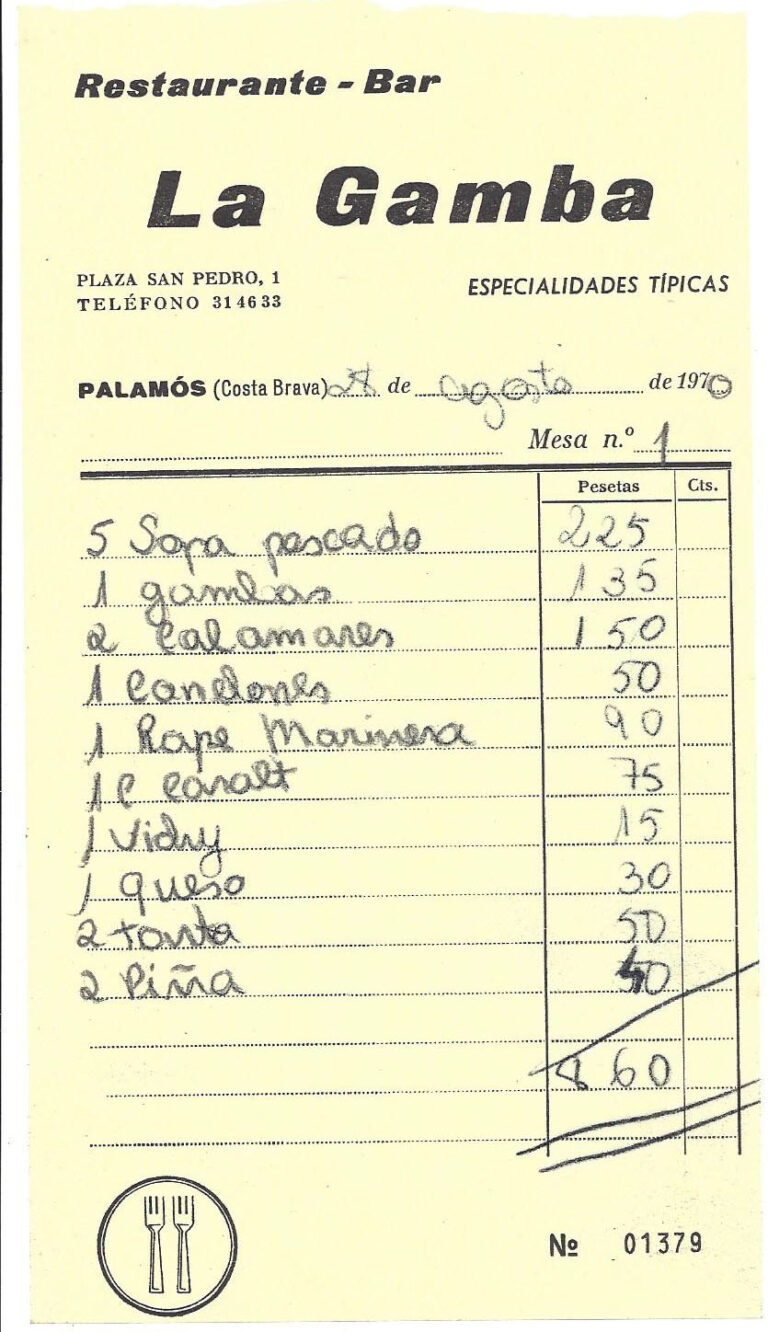 Restaurante - Bar
La Gamba
PLAZA SAN PEDRO, 1
TELÉFONO 314633
ESPECIALIDADES TÍPICAS
PALAMÓS (Costa Brava) 27 de agosto de 1970
Mesa n.º 1
Pesetas Cts.
5 Sopa pescado 225
1 gambas 135
2 Calamares 150
1 Canelones 50
1 Rape Marinera 90
1 C Caralt 75
1 Vichy 15
1 queso 30
2 tarta 50
2 Piña 40
860
Nº 01379